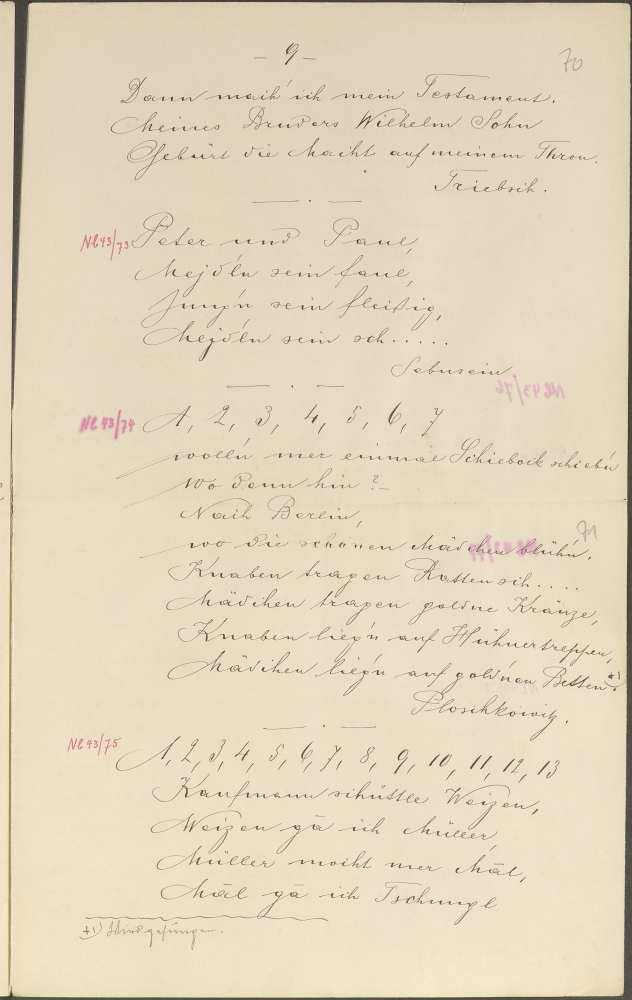 - 9 -
70
Dann mach' ich mein Testament.
Meines Bruders Wilhelm Sohn
Gebürt die Macht auf meinem Thron.
Triebsch.
Nl 43/73
Peter und Paul,
Mejdln sein faul,
Jung'n sein fleißig,
Mejdln sein sch.....
Sebusein
Nl 43/74
1, 2, 3, 4, 5, 6, 7
woll'n mer einmal Schiebock schieb'n
Wo denn hin?
Nach Berlin,
71
wo die schönen Mädchen blüh'n.
Knaben tragen Rattensch....
Mädchen tragen goldne Kränze,
Knaben lieg'n auf Hühnertreppen,
Mädchen lieg'n auf gold'nen Betten. *)
Ploschkowitz.
Nl 43/75
1, 2, 3, 4, 5, 6, 7, 8, 9, 10, 11, 12, 13
Kaufmann schüttle Weizen,
Weizen gā ich Müller,
Müller mocht mer Māl,
Māl gā ich Tschungl
*) Wird gesungen.